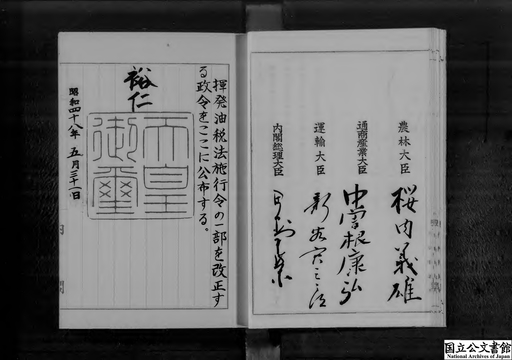 農林大臣 桜内義雄
通商産業大臣 中曽根康弘
運輸大臣 新谷寅三郎
内閣総理大臣 田中角栄
揮発油税法施行令の一部を改正す
る政令をここに公布する。
裕仁
天皇
御璽
昭和四十八年 五月三十一日
国立公文書館
National Archives of Japan